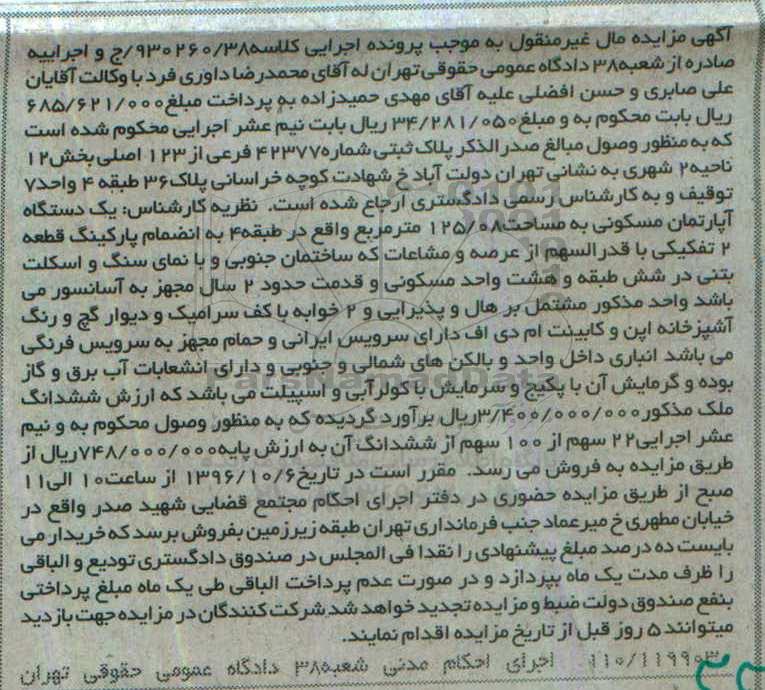 آگهی مزایده مال غیرمنقول به موجب پرونده اجرایی کلاسه۹۳۰۲۶۰/۳۸/ج و اجراییه
صادره از شعبه۳۸ دادگاه عمومی حقوقی تهران له آقای محمدرضا داوری فرد با وکالت آقایان
علی صابری و حسن افضلی علیه آقای مهدی حمیدزاده به پرداخت مبلغ۶۸۵/۶۲۱/۰۰۰
ریال بابت محکوم به و مبلغ۳۴/۲۸۱/۰۵۰ ریال بابت نیم عشر اجرایی محکوم شده است
که به منظور وصول مبالغ صدرالذکر پلاک ثبتی شماره۴۲۳۷۷ فرعی از ۱۲۳ اصلی بخش۱۲
ناحیه۲ شهری به نشانی تهران دولت آباد خ شهادت کوچه خراسانی پلاک۳۶ طبقه ۴ واحد۷
توقیف و به کارشناس رسمی دادگستری ارجاع شده است. نظریه کارشناس: یک دستگاه
آپارتمان مسکونی به مساحت۱۲۵/۰۸ مترمربع واقع در طبقه۴ به انضمام پارکینگ قطعه
۲ تفکیکی با قدرالسهم از عرصه و مشاعات که ساختمان جنوبی و با نمای سنگ و اسکلت
بتنی در شش طبقه و هشت واحد مسکونی و قدمت حدود ۲ سال مجهز به آسانسور می
باشد واحد مذکور مشتمل بر هال و پذیرایی و ۲ خوابه با کف سرامیک و دیوار گچ و رنگ
آشپزخانه اپن و کابینت ام دی اف دارای سرویس ایرانی و حمام مجهز به سرویس فرنگی
می باشد انباری داخل واحد و بالکن های شمالی و جنوبی و دارای انشعابات آب برق و گاز
بوده و گرمایش آن با پکیج و سرمایش با کولرآبی و اسپیلت می باشد که ارزش ششدانگ
ملک مذکور۳/۴۰۰/۰۰۰/۰۰۰ریال برآورد گردیده که به منظور وصول محکوم به و نیم
عشر اجرایی۲۲ سهم از ۱۰۰ سهم از ششدانگ آن به ارزش پایه۷۴۸/۰۰۰/۰۰۰ریال از
طریق مزایده به فروش می رسد. مقرر است در تاریخ۱۳۹۶/۱۰/۶ از ساعت۱۰ الی۱۱
صبح از طریق مزایده حضوری در دفتر اجرای احکام مجتمع قضایی شهید صدر واقع در
خیابان مطهری خ میرعماد جنب فرمانداری تهران طبقه زیرزمین بفروش برسد که خریدار می
بایست ده درصد مبلغ پیشنهادی را نقدا فی المجلس در صندوق دادگستری تودیع و الباقی
را ظرف مدت یک ماه بپردازد و در صورت عدم پرداخت الباقی طی یک ماه مبلغ پرداختی
بنفع صندوق دولت ضبط و مزایده تجدید خواهد شد شرکت کنندگان در مزایده جهت بازدید
میتوانند ۵ روز قبل از تاریخ مزایده اقدام نمایند.
۱۱۰/۱۱۹۹۰۳ اجرای احکام مدنی شعبه۳۸ دادگاه عمومی حقوقی تهران
ParsNamadData